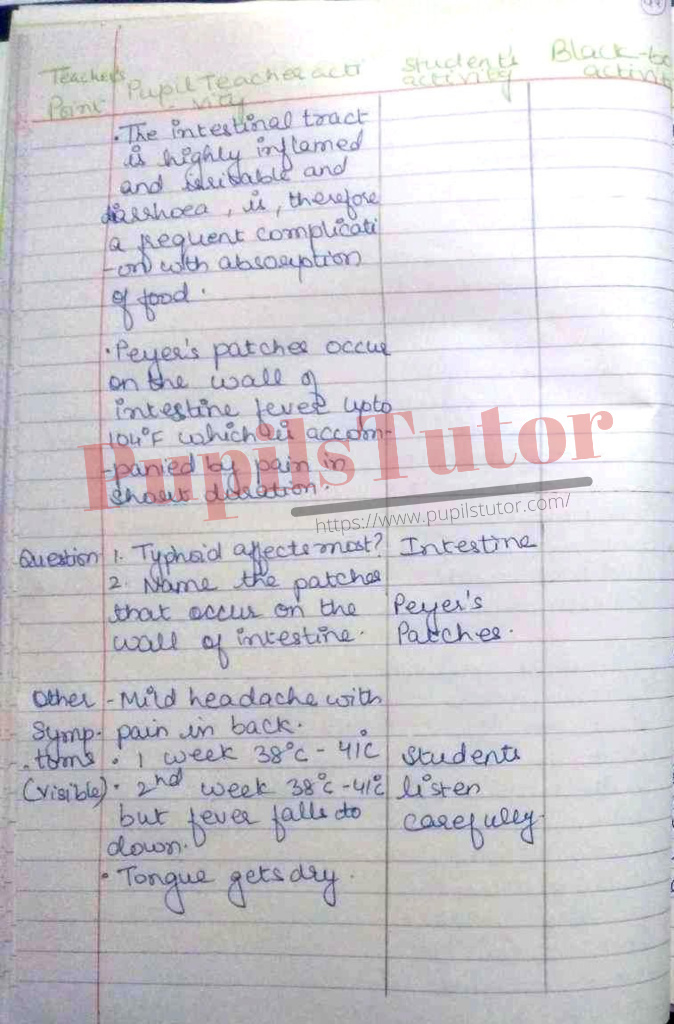 Teacher's Point
Pupil Teacher acti
- vity
Student's activity
Black-bo
activit
• The intestinal tract
is highly inflamed
and irritable and
diarrhoea, is, therefore
a frequent complicati
-on with absorption
of food.
• Peyer's patches occur
on the wall of
intestine fever upto
104°F which is accom-
-panied by pain in
short duration.
PupilsTutor
https://www.pupilstutor.com/
Question 1. Typhoid affects most? Intestine
2. Name the patches
that occur on the Peyer's
wall of intestine. Patches.
Other - Mild headache with
Symp- pain in back.
-toms • 1 week 38°c - 41°c Students
(visible) • 2nd week 38°c - 41°c listen
but fever falls to carefully.
down.
• Tongue gets dry.